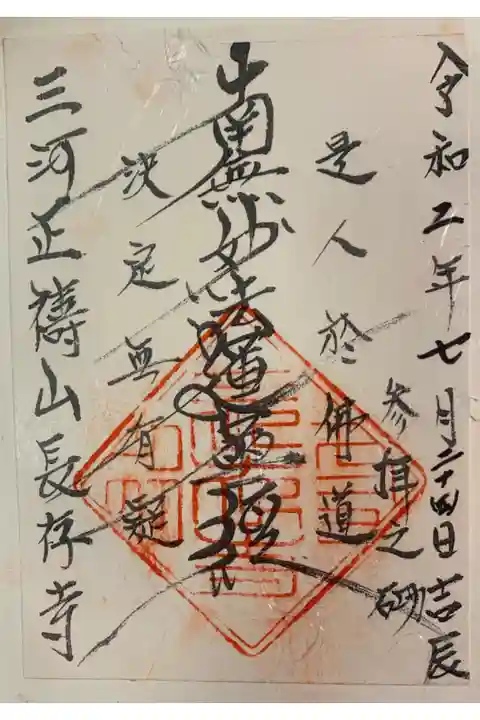 令和二年七月二十四日吉辰
参拝之砌
是人於佛道
南無妙法蓮華経
決定無有疑
三河正祷山長存寺